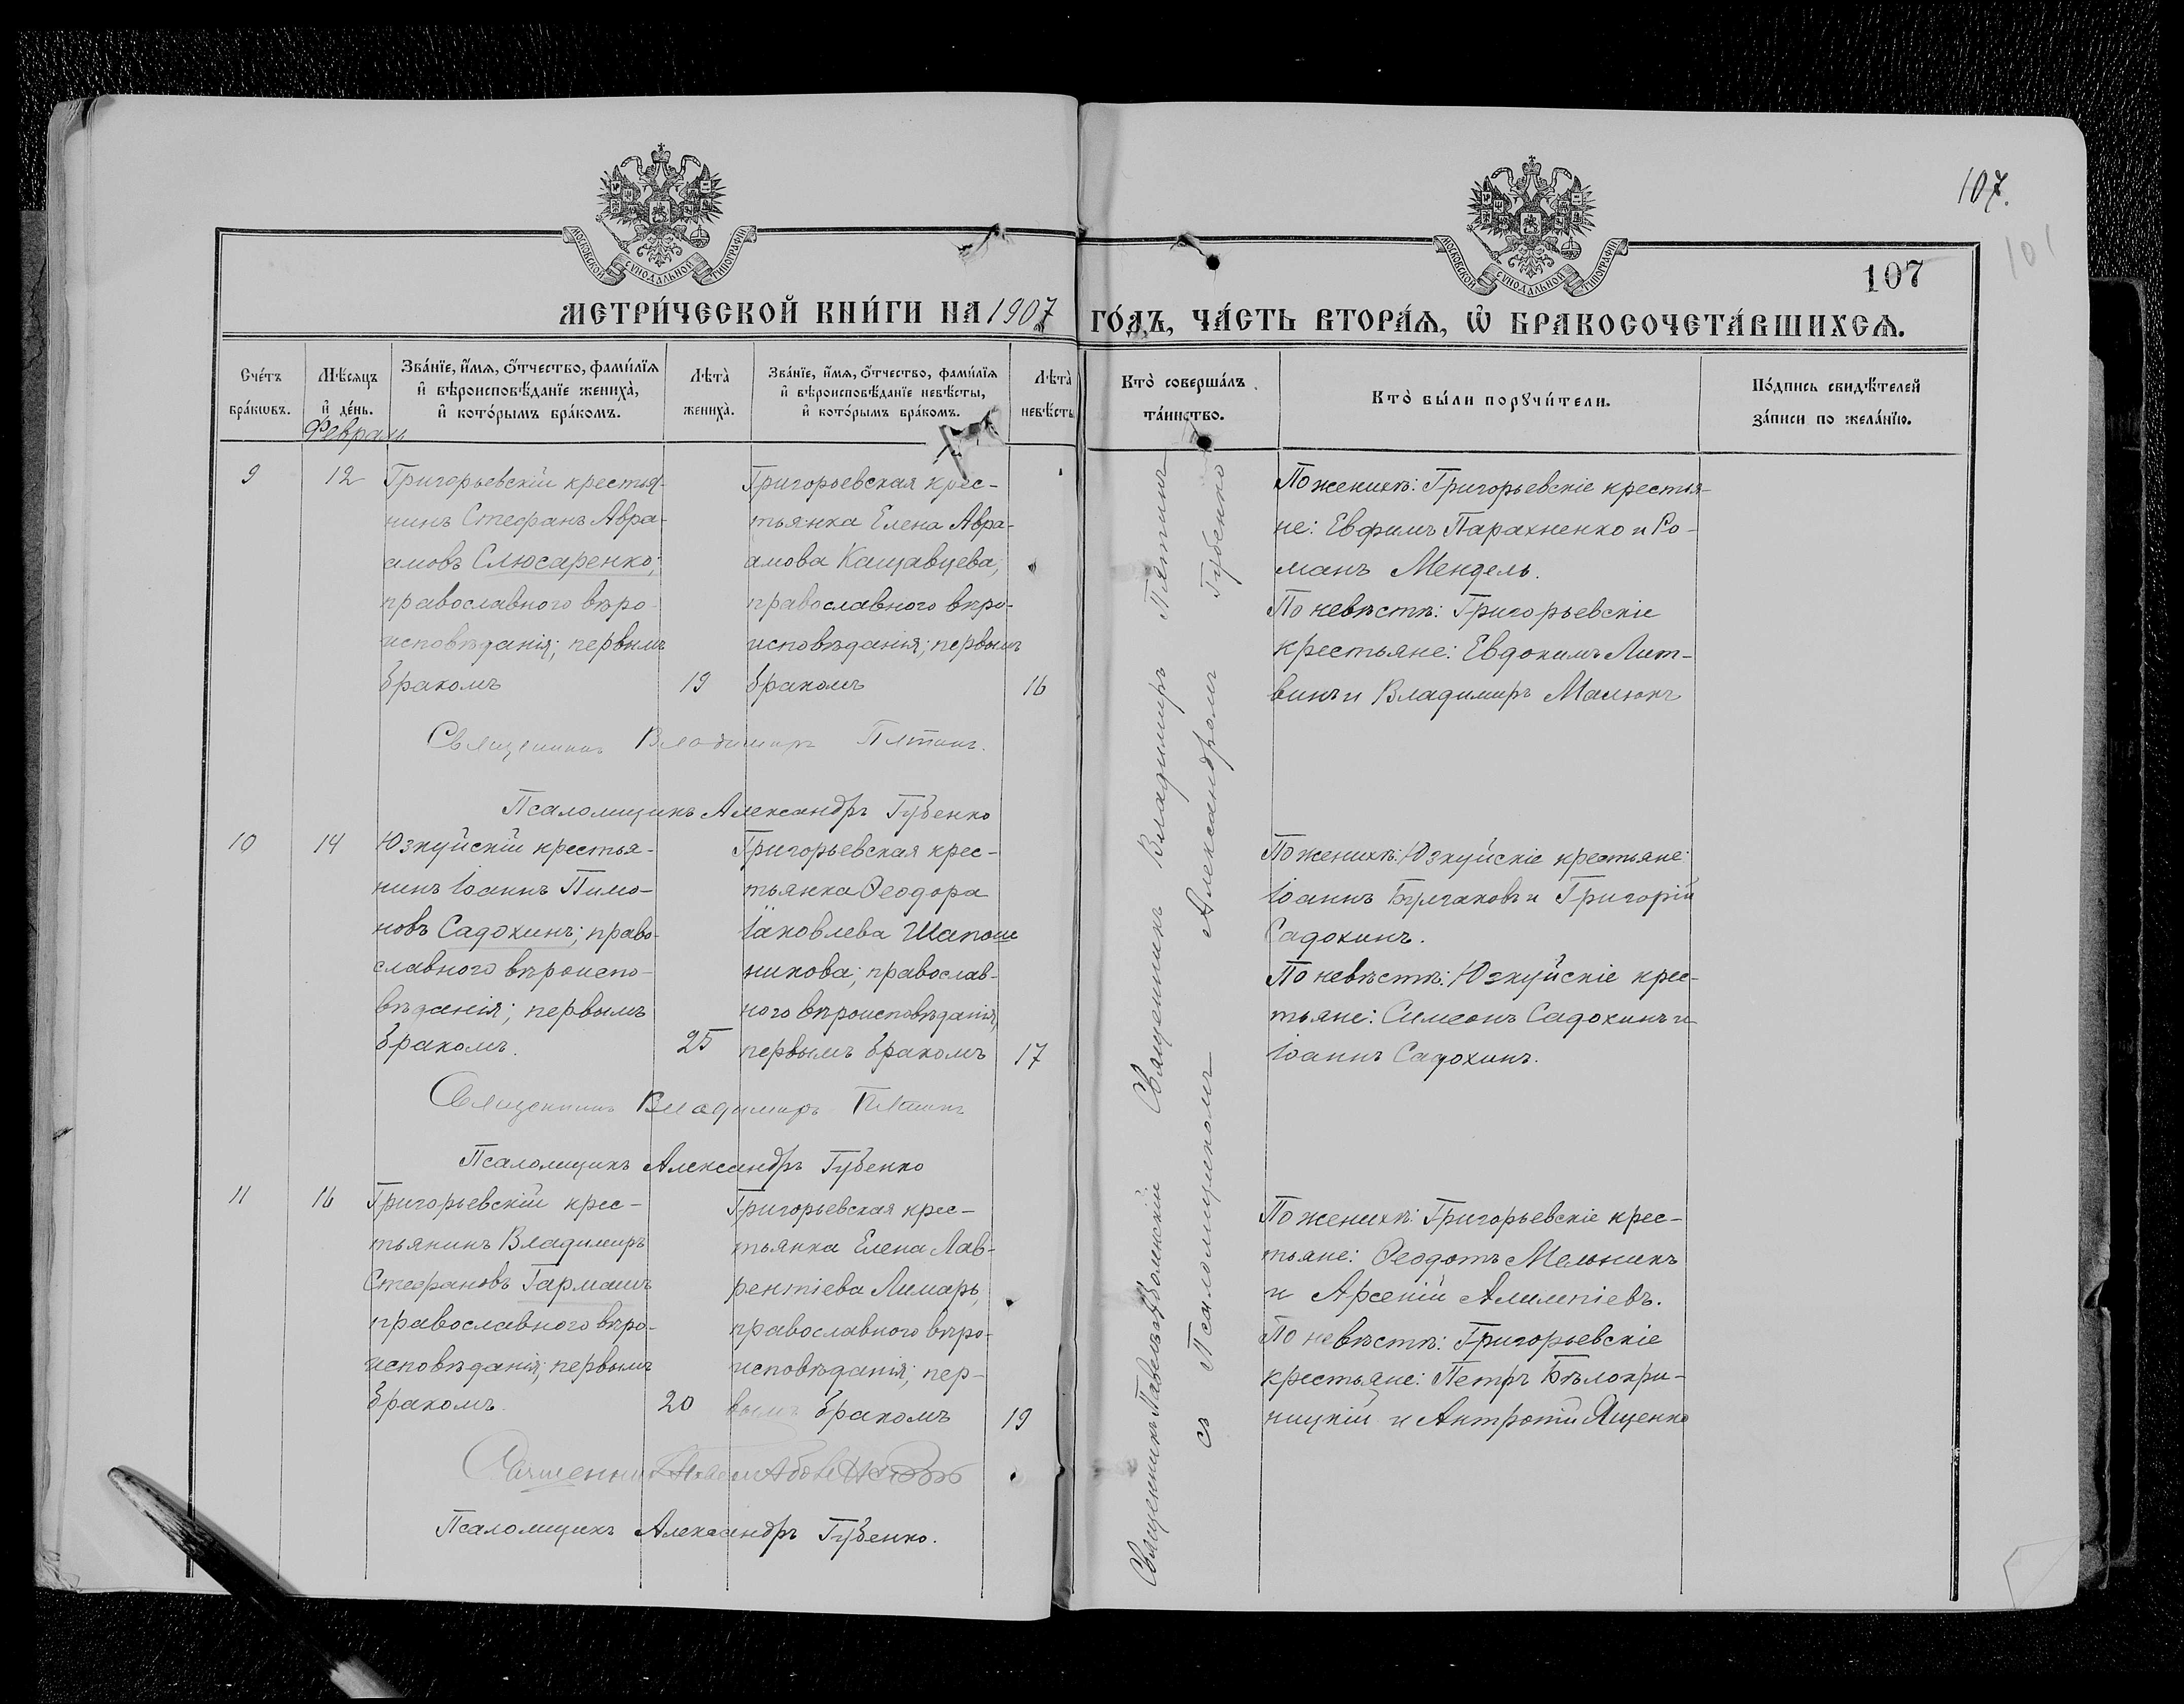 107.
101
МОСКОВСКОЙ СѴНОДАЛЬНОЙ ТИПОГРАФІИ
МОСКОВСКОЙ СѴНОДАЛЬНОЙ ТИПОГРАФІИ
107
МЕТРИ́ЧЕСКОЙ КНИ́ГИ НА 1907 ГО́ДЪ, ЧА́СТЬ ВТОРА́Ѧ, Ѽ БРАКОСОЧЕТА́ВШИХСѦ.
Сче́тъ
бра́кѡвъ.
Мѣ́сѧцъ
и҆ де́нь.
Февраль
Зва́нїе, и҆́мѧ, ѻ҆́тчество, фами́лїѧ
и҆ вѣроисповѣ́данїе жениха̀,
и҆ кото́рымъ бра́комъ.
Лѣта̀
жениха̀.
Зва́нїе, и҆́мѧ, ѻ҆́тчество, фами́лїѧ
и҆ вѣроисповѣ́данїе невѣ́сты,
и҆ кото́рымъ бра́комъ.
Лѣта̀
невѣ́сты
Кто̀ соверша́лъ
та́инство.
Кто̀ бы́ли порꙋчи́тели.
По́дпись свидѣ́телей
за́писи по жела́нїю.
9
12
Григорьевскій крестья-
нинъ Стефанъ Авра-
амовъ Слюсаренко;
православного вѣро-
исповѣданія; первымъ
бракомъ
19
Григорьевская крес-
тьянка Елена Авра-
амова Кащавцева;
православного вѣро-
исповѣданія; первымъ
бракомъ
16
По женихѣ: Григорьевскіе крестья-
не: Евфимъ Парахненко и Ро-
манъ Мендель.
По невѣстѣ: Григорьевскіе
крестьяне: Евдокимъ Лит-
винъ и Владимиръ Малюкъ
Священникъ Владимиръ Пятинъ.
Псаломщикъ Александръ Губенко
10
14
Юзкуйскій крестья-
нинъ Іоаннъ Пимо-
новъ Садохинъ; право-
славного вѣроиспо-
вѣданія; первымъ
бракомъ.
25
Григорьевская крес-
тьянка Ѳеодора
Іаковлева Шапош
никова; православ-
ного вѣроисповѣданія,
первымъ бракомъ
17
По женихѣ: Юзкуйскіе крестьяне:
Іоаннъ Булгаковъ и Григорій
Садохинъ.
По невѣстѣ: Юзкуйскіе крес-
тьяне: Симеонъ Садохинъ и
Іоаннъ Садохинъ.
Священникъ Владимиръ Пятинъ
Псаломщикъ Александръ Губенко
11
16
Григорьевскій крес-
тьянинъ Владимиръ
Стефановъ Гармашъ
православного вѣро-
исповѣданія; первымъ
бракомъ.
20
Григорьевская крес-
тьянка Елена Лав-
рентіева Лимарь,
православного вѣро-
исповѣданія; пер-
вымъ бракомъ
19
По женихѣ: Григорьевскіе крес-
тьяне: Ѳеодотъ Мельникъ
и Арсеній Алимпіевъ.
По невѣстѣ: Григорьевскіе
крестьяне: Петръ Бѣлокри-
ницкій и Антропій Ященко
Священникъ
Псаломщикъ Александръ Губенко.
Священникъ Павелъ Священникъ Владимиръ Пятинъ
съ Псаломщикомъ Александромъ Губенко